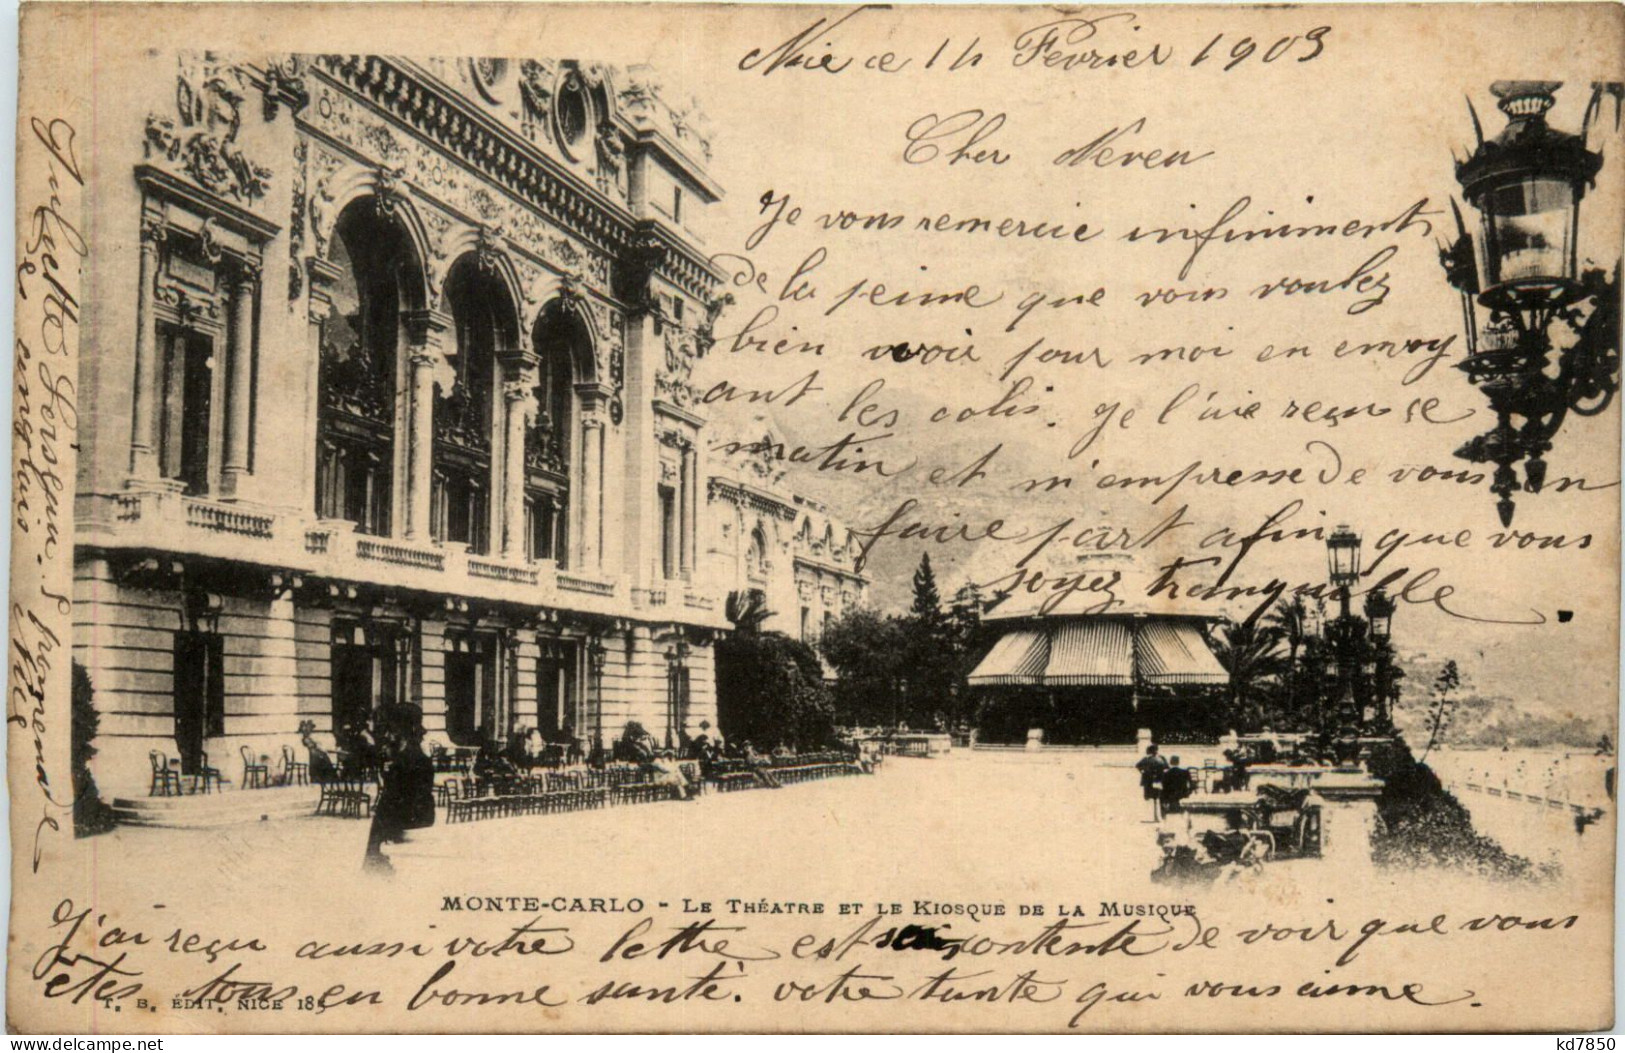 Nice ce 14 Fevrier 1903
Cher Neveu
Je vous remercie infiniment
de la peine que vous voulez
bien avoir pour moi en envoy
ant les colis. Je l'aie reçu ce
matin et m'empresse de vous en
faire part afin que vous
soyez tranquille.
MONTE-CARLO - LE THÉATRE ET LE KIOSQUE DE LA MUSIQUE
J'ai reçu aussi votre lettre est contente de voir que vous
êtes tous en bonne santé. votre tante qui vous aime.
T. B. ÉDIT. NICE 185
Juliette 5 promenade
des anglais Nice
kd7850